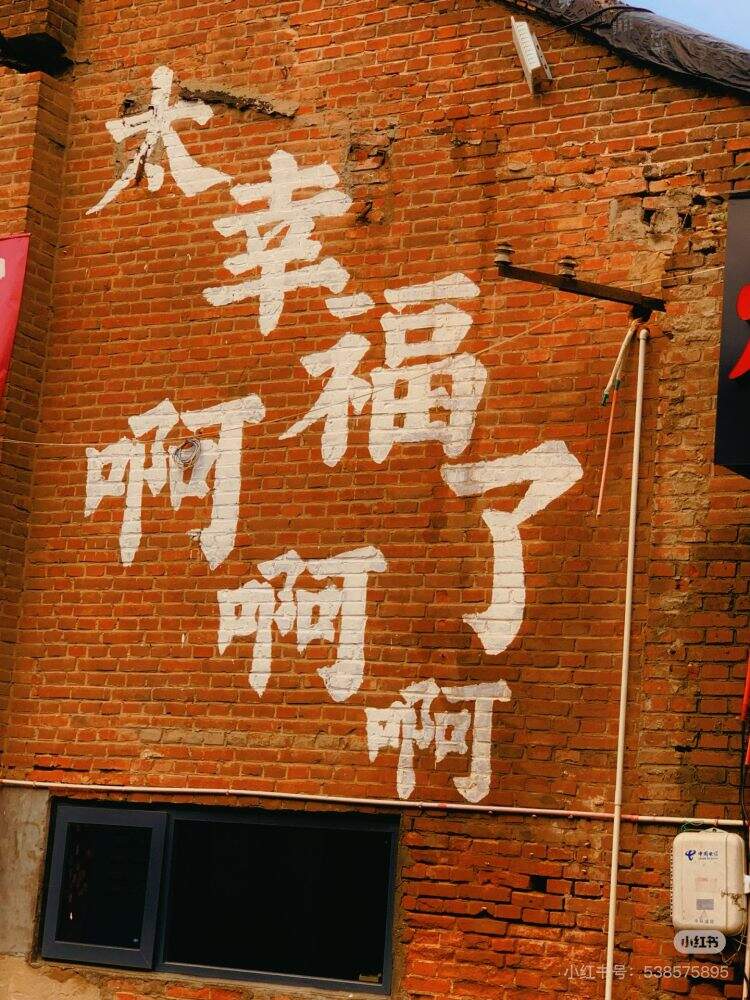 太幸福了
啊啊啊
中国电信
小红书
小红书号：538575895